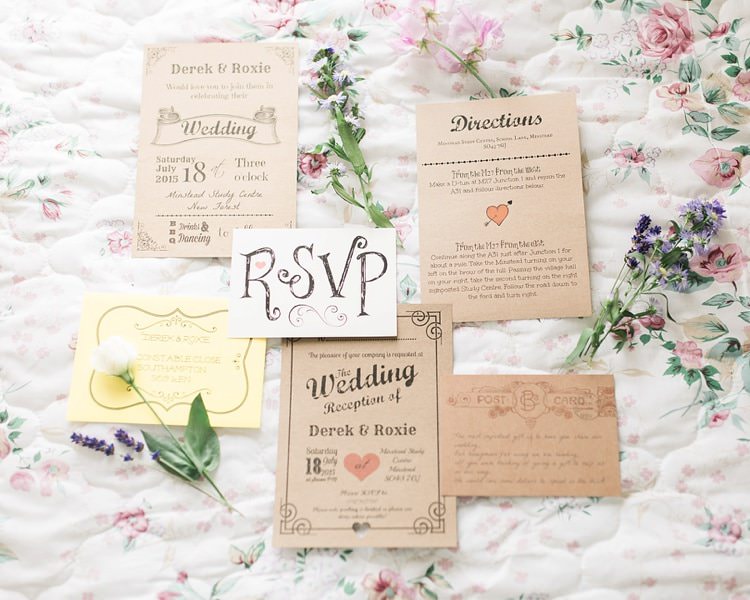 Derek & Roxie
Would love you to join them in
celebrating their
Wedding
Saturday
July
2015
18
at
Three
o'clock
Minstead Study Centre
New Forest
BBQ
Drinks &
Dancing
to
Directions
Minstead Study Centre, School Lane, Minstead
SO43 7GJ
From the M27 From the West
Make a U-turn at M27 Junction 1 and rejoin the
A31 and follow directions below.
From the M27 From the East
Continue along the A31 just after Junction 1 for
about a mile. Take the Minstead turning on your
left on the brow of the hill. Passing the village hall
on your right, take the second turning on the right
signposted Study Centre. Follow the road down to
the ford and turn right.
RSVP
DEREK & ROXIE
CONSTABLE CLOSE
SOUTHAMPTON
The pleasure of your company is requested at
The
Wedding
Reception of
Derek & Roxie
Saturday
18 July
2015
at
Minstead Study
Centre
Minstead
SO43 7GJ
Please RSVP to
POST CARD
The most important gift is to have you share our
wedding,